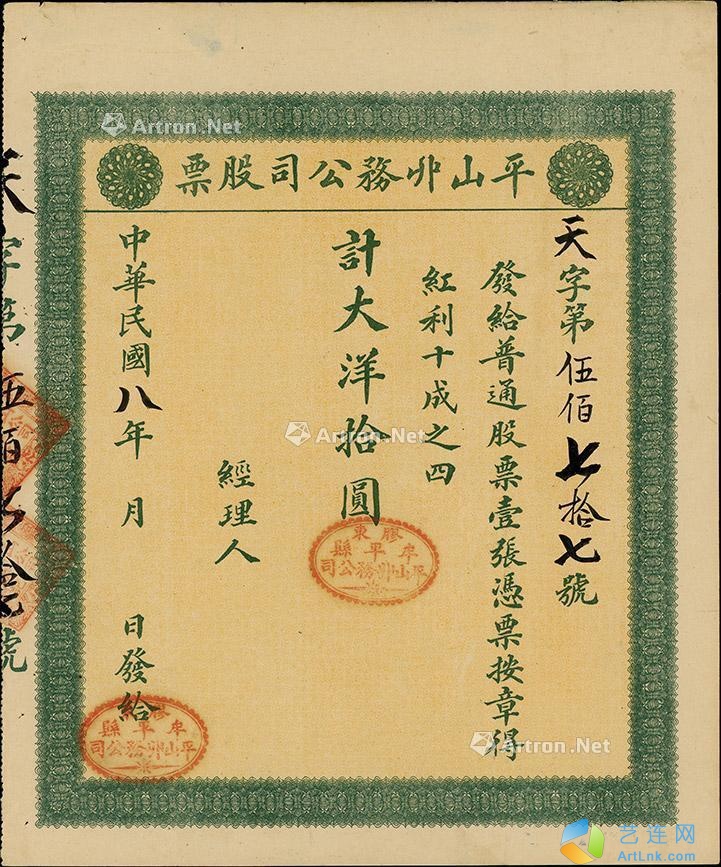 平山丱務公司股票
天字第伍佰七拾七號
發給普通股票壹張憑票按章得
紅利十成之四
計大洋拾圓
經理人
中華民國八年 月 日發給
膠東
牟平縣
平山丱務公司
膠東
牟平縣
平山丱務公司
天字第伍佰七拾七號
Artron.Net
Artron.Net
Artron.Net
艺连网
ArtLnk.com